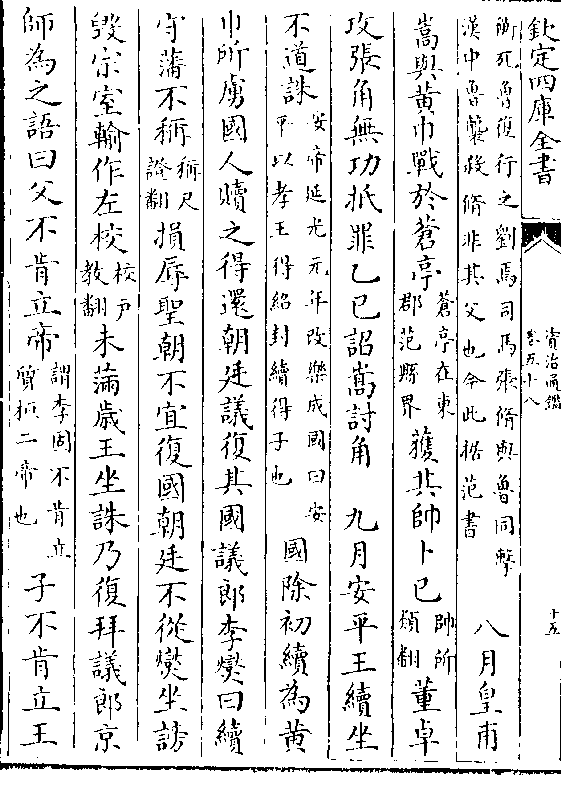 欽定四庫全書
資治通鑑
卷五十八
十五
衡死魯復行之劉焉司馬張脩與魯同擊
漢中魯襲殺脩非其父也今此據范書
八月皇甫
嵩與黄巾戰於蒼亭
蒼亭在東
郡范縣界
獲其帥卜已
帥所
類翻
董卓
攻張角無功抵罪乙巳詔嵩討角 九月安平王續坐
不道誅
安帝延光元年改樂成國曰安
平以孝王得紹封續得子也
國除初續為黄
巾所虜國人贖之得還朝廷議復其國議郎李燮曰續
守藩不稱
稱尺
證翻
損辱聖朝不宜復國朝廷不從燮坐謗
毁宗室輸作左校
校戶
教翻
未滿歲王坐誅乃復拜議郎京
師為之語曰父不肯立帝
謂李固不肯立
質桓二帝也
子不肯立王